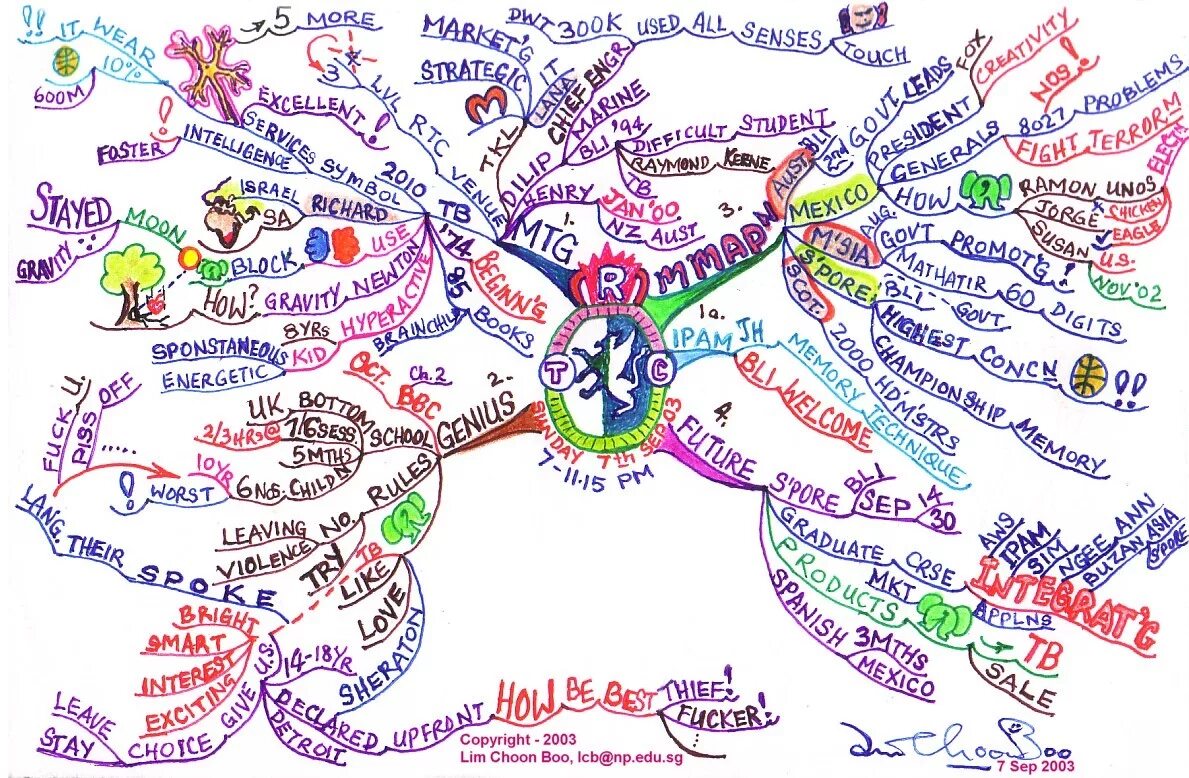 R
T C
SUNDAY 7th SEP 03
7-11.15 PM
1. MTG
VENUE
RTC
LVL
3
TKL
STRATEGIC
MARKET'G
IT
LANA
DILIP
CHEF ENGR
DWT 300K USED ALL SENSES
TOUCH
MARINE
BLI '94
DIFFICULT STUDENT
RAYMOND KEENE
TB
HENRY
JAN '00
NZ AUST
TB
2010
SYMBOL
SERVICES
5 MORE
IT WEAR
10%
600M
EXCELLENT !
INTELLIGENCE
FOSTER !
RICHARD
ISRAEL
SA
USE
BLOCK
NEWTON
GRAVITY
HOW?
MOON
STAYED
GRAVITY
HYPERACTIVE
KID
8YRs
SPONSTANEOUS
ENERGETIC
'74
BEGINN'G
95
BOOKS
BRAINCHILD
2. GENIUS
BBC
Ch.2
OCT.
SCHOOL
BOTTOM
UK
7/6 SESS
2/3 HRs@
5 MTHS
6 NoS. CHILDN
10YR
WORST
!
PISS OFF
FUCK U.
.....
RULES
NO.
LEAVING
VIOLENCE
TRY
TB
LIKE
LOVE
SHERATON
SPOKE
THEIR
LANG.
BRIGHT
SMART
INTEREST
EXCITING
U.S.
14-18YR
GIVE
CHOICE
LEAVE
STAY
DETROIT
DECLARED UPFRONT
HOW BE BEST THIEF!
FUCKER!
3. MMAPN
AUST.
BLI
2nd
MEXICO
GOVT LEADS
PRESIDENT
FOX
CREATIVITY
GENERALS
8027 PROBLEMS
NOS!
FIGHT TERRORM
HOW
RAMON UNOS
ELECT!
JORGE x CHICKEN
EAGLE
SUSAN
U.S.
NOV'02
M'SIA
AUG.
GOVT PROMOT'G !
MATHATIR 60 DIGITS
S'PORE
BLI-- GOVT
HIGHEST CONCN
!!
CHAMPIONSHIP MEMORY
SCOT.
2000 HD'M'STRS
1a.
IPAM JH
MEMORY TECHNIQUE
BLI WELCOME
4. FUTURE
S'PORE
BLI
SEP 14
30
GRADUATE CRSE
INTEGRAT'G
AWS
IPAM
SIM
NGEE ANN
BUZAN ASIA
S'PORE
PRODUCTS
MKT
APPLNS
TB
SALE
SPANISH 3MTHS
MEXICO
Lim Choon Boo
7 Sep 2003
Copyright - 2003
Lim Choon Boo, lcb@np.edu.sg